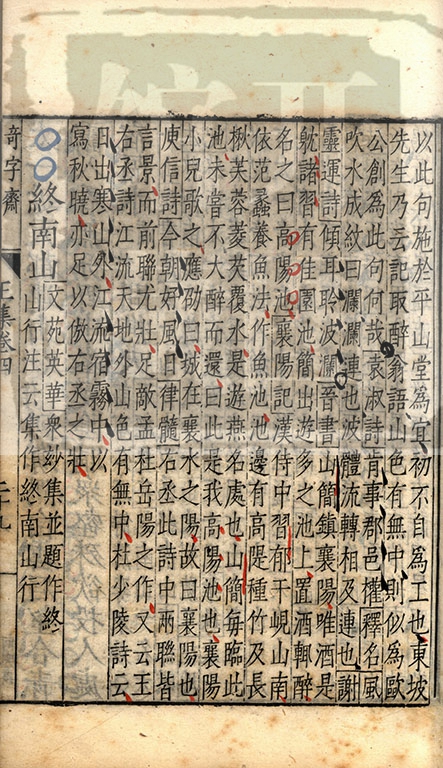 以此句施於平山堂爲宜初不自爲工也東坡
先生乃云記取醉翁語山色有無中則似爲歐
公創爲此句何哉袁淑詩肯事郡邑權釋名風
吹水成紋曰瀾瀾連也波體流轉相及連也謝
靈運詩傾耳聆波瀾晉書山簡鎮襄陽唯酒是
躭諸習有佳園池簡出遊多之池上置酒輒醉
名之曰高陽池襄陽記漢侍中習郁于峴山南
依范蠡養魚法作魚池池邊有高隄種竹及長
楸芙蓉菱芡覆水是遊燕名處也山簡每臨此
池未嘗不大醉而還曰此是我高陽池也襄陽
小兒歌之應劭曰城在襄水之陽故曰襄陽也
庾信詩今朝好風日律髓右丞此詩中兩聯皆
言景而前聯尤壯足敵孟杜岳陽之作又云王
右丞詩江流天地外山色有無中杜少陵詩云
日出寒山外江流宿霧中以
寫秋曉亦足以倣右丞之壯
終南山文苑英華衆妙集並題作終
山行注云集作終南山行
奇字齋 王集卷四 二十九